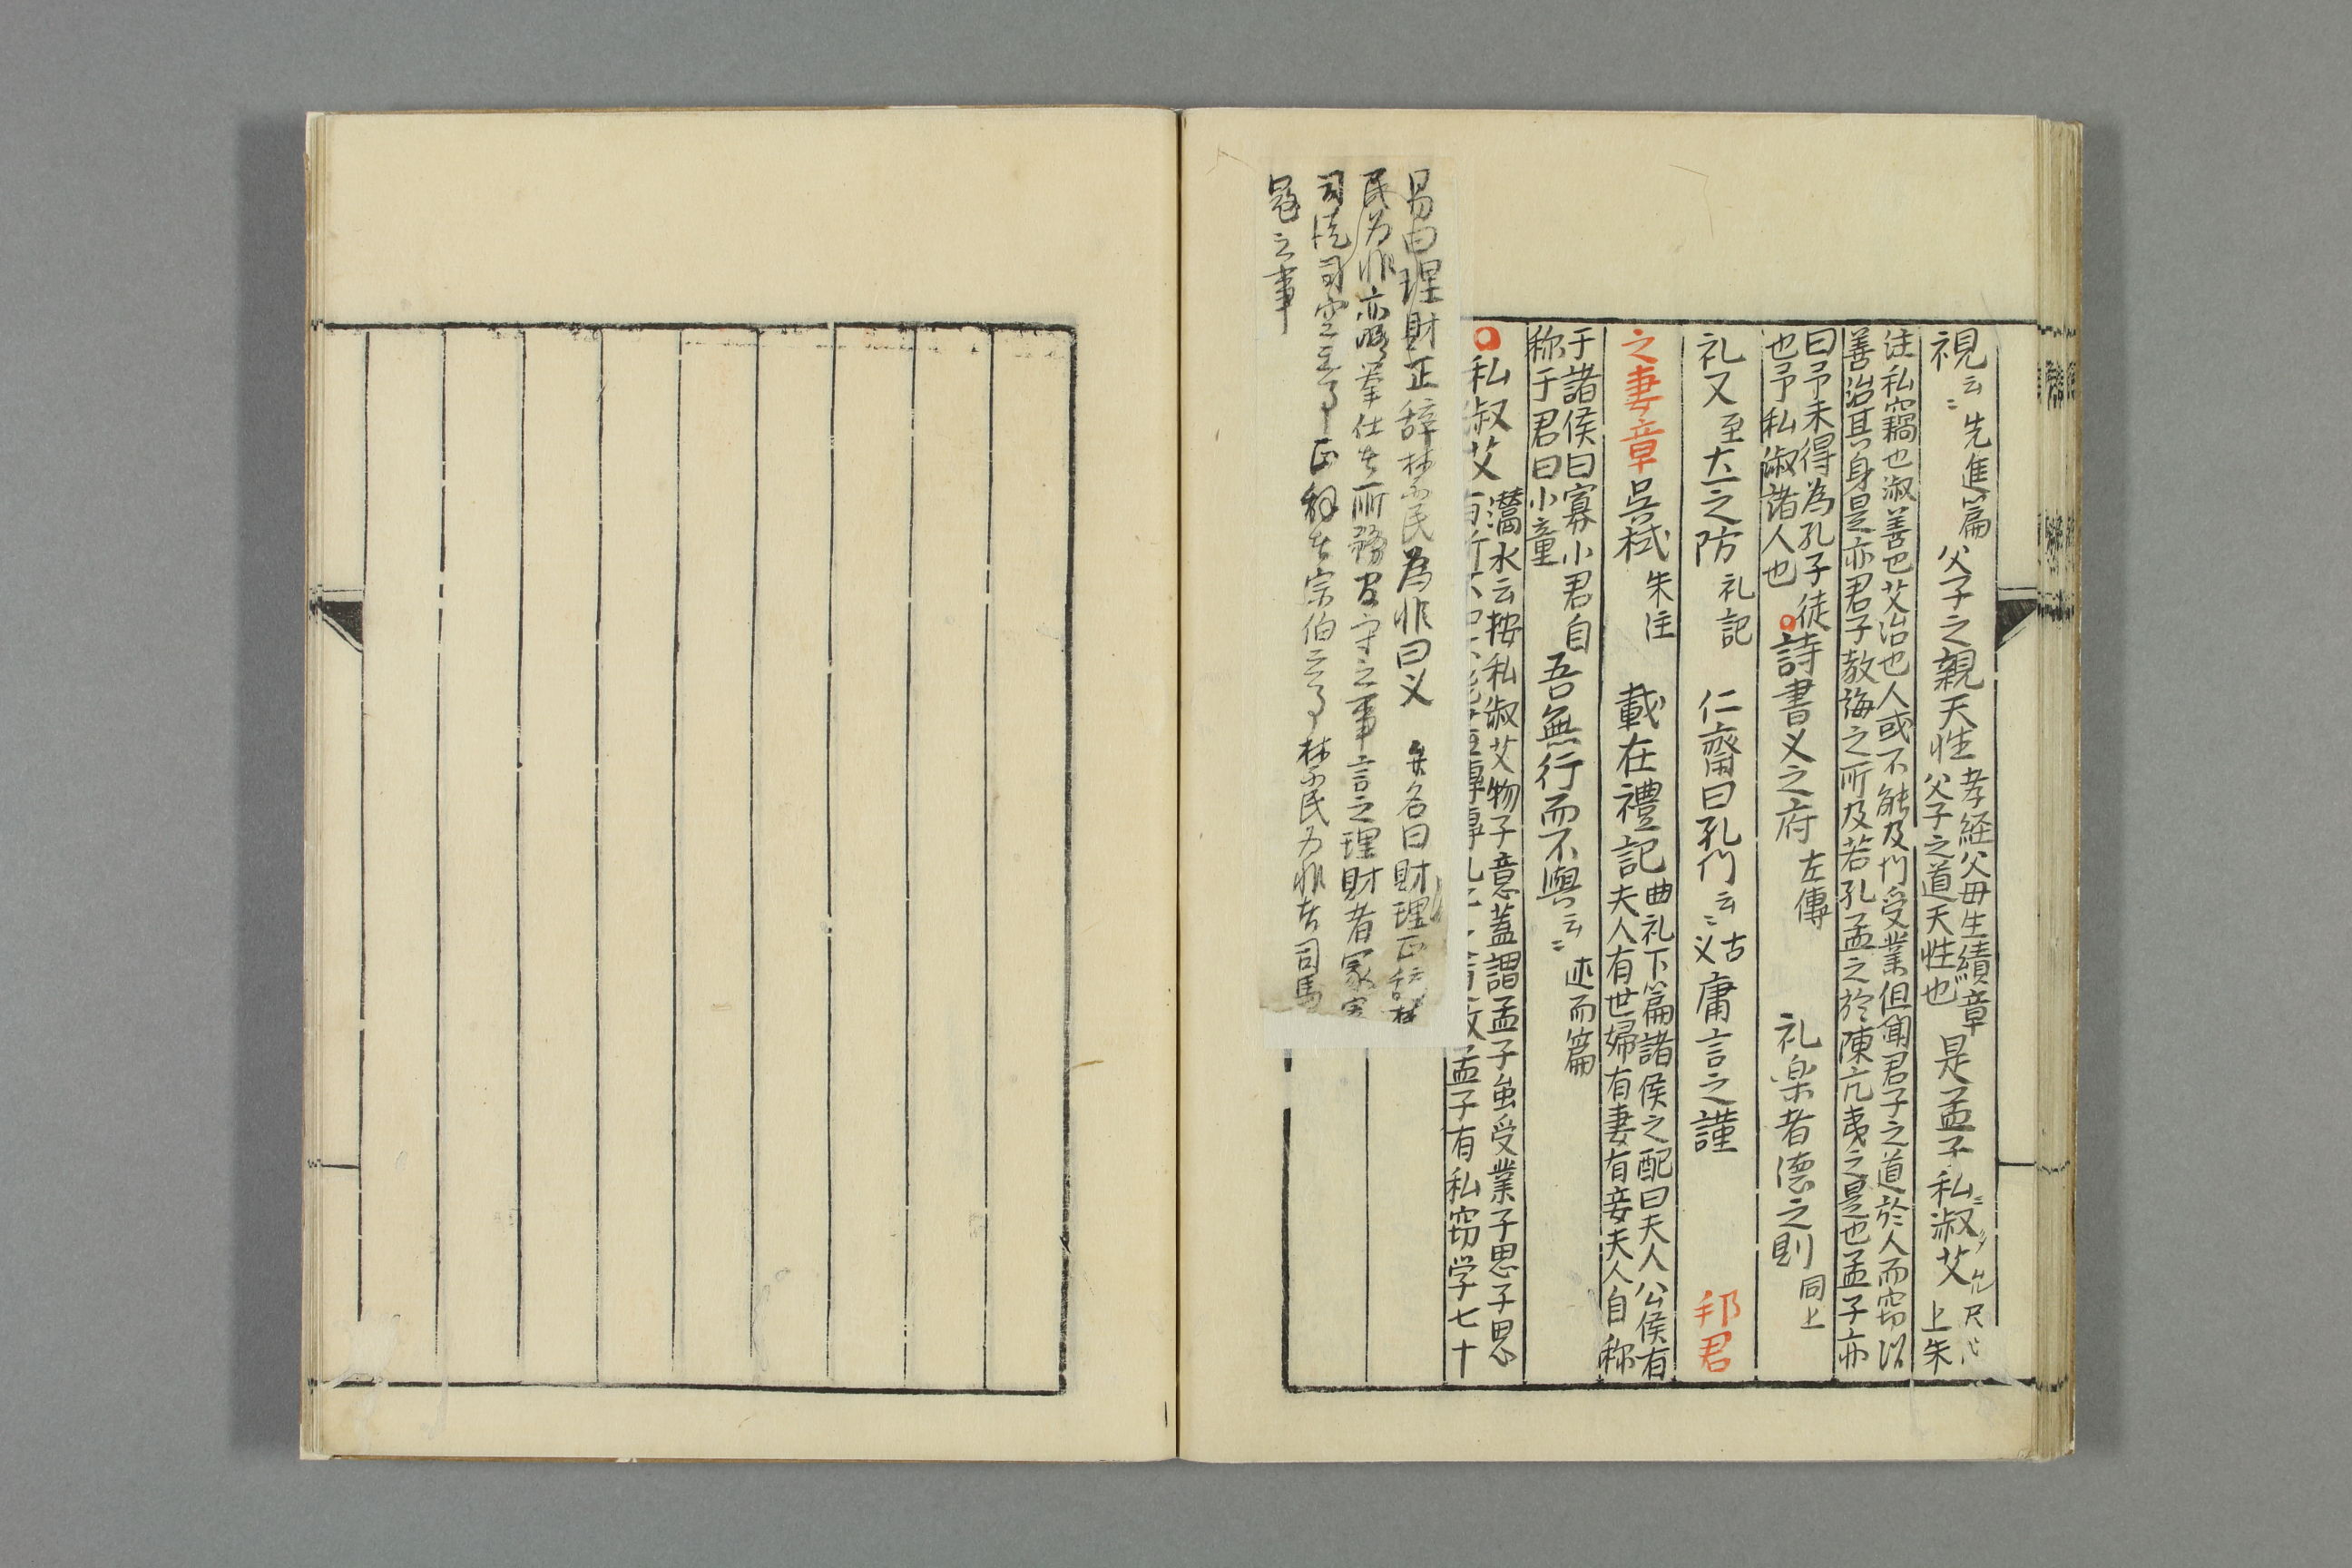 視云〻先進篇 父子之親天性 孝経父母生績章父子之道天性也 是孟子私淑艾 上朱
注私竊也淑善也艾治也人或不能及門受業但聞君子之道於人而窃以
善治其身是亦君子教誨之所及若孔孟之於陳亢夷之是也孟子亦
曰予未得為孔子徒
也予私淑諸人也 詩書义之府 左傳 礼楽者德之則 同上
礼又至大一之防 礼記 仁齋曰孔们云〻 古义 庸言之謹 邦君
之妻章 呉棫 朱注 載在禮記 曲礼下篇諸侯之配曰夫人公侯有
夫人有世婦有妻有妾夫人自称
于諸侯曰寡小君自
称于君曰小童 吾無行而不與云〻 述而篇
私淑艾 灊水云按私淑艾物子意蓋謂孟子虽受業子思子思
孟子有私窃学七十
易曰理財正辞禁民為非曰义 弁名曰財理正辞禁
民為非亦隨羣仕生所務官守之事言之理財者冢宰
司徒司空之事正辞者宗伯之事禁民為非者司馬
寇之事